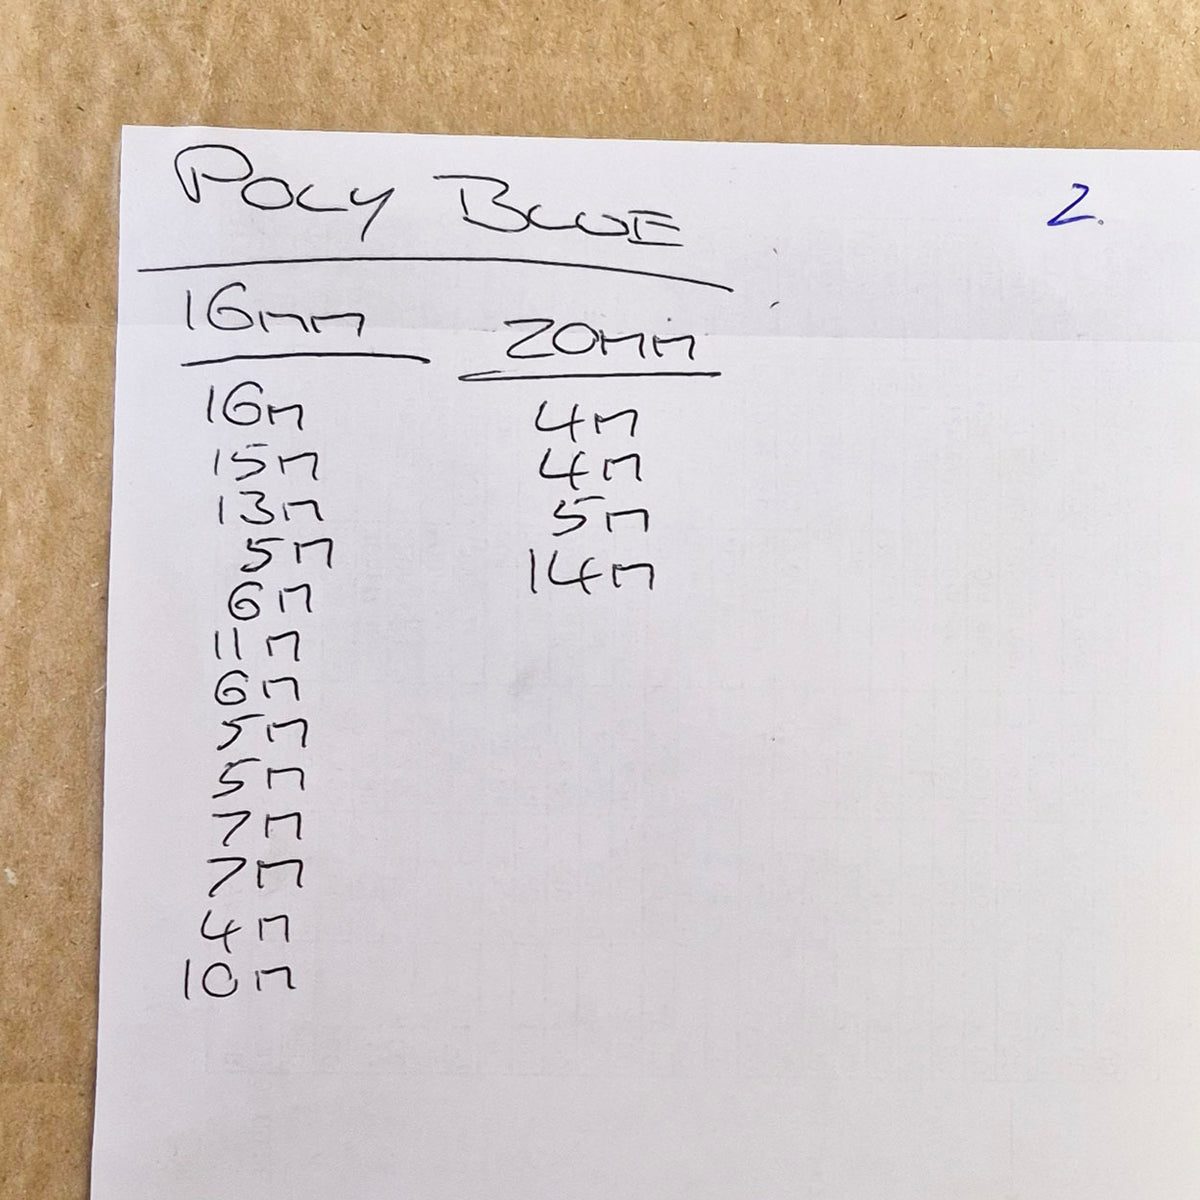 POLY BLUE
2.
16mm
16m
15m
13m
5m
6m
11m
6m
5m
5m
7m
7m
4m
10m
20mm
4m
4m
5m
14m